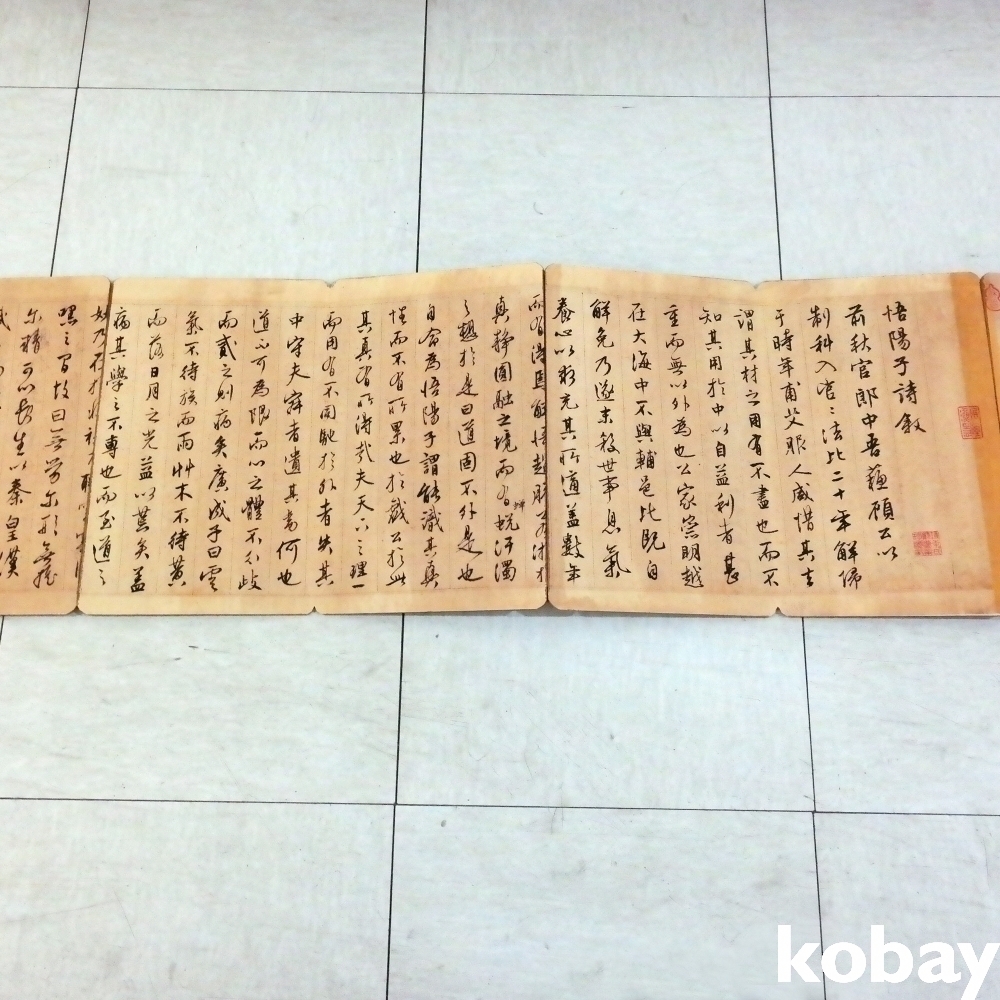 悟陽子詩敘
前秋官郎中吾蘓顧公以
制科入官二法比二十年解帰
于時年甫艾眂人咸惜其去
謂其材之用有不盡也而不
知其用於中以自益利者甚
重而無以外為也公家崇明越
在大海中不與輔邑比既自
解免乃遂末殺世事息氣
養心以務充其所道蓋數年
而有得焉
真静圓融之境而有蛻汙濁
之趣於是曰道固不外是也
自命為悟陽子謂能識其真
性而不有所累也於戲公於此
其真有所得哉夫天下之理一
中守夫寂者遺其書何也
而用有不同馳於外者失其
道之可為限而心之體不以歧
而貳之則病矣廣成子曰雲
氣不待族而雨艸木不待黄
而落日月之光益以荒矣蓋
病其學之不專也而至道之
妙乃在於
嘿之間故曰無勞尓形無搖
尓精可以長生以秦皇漢
kobay